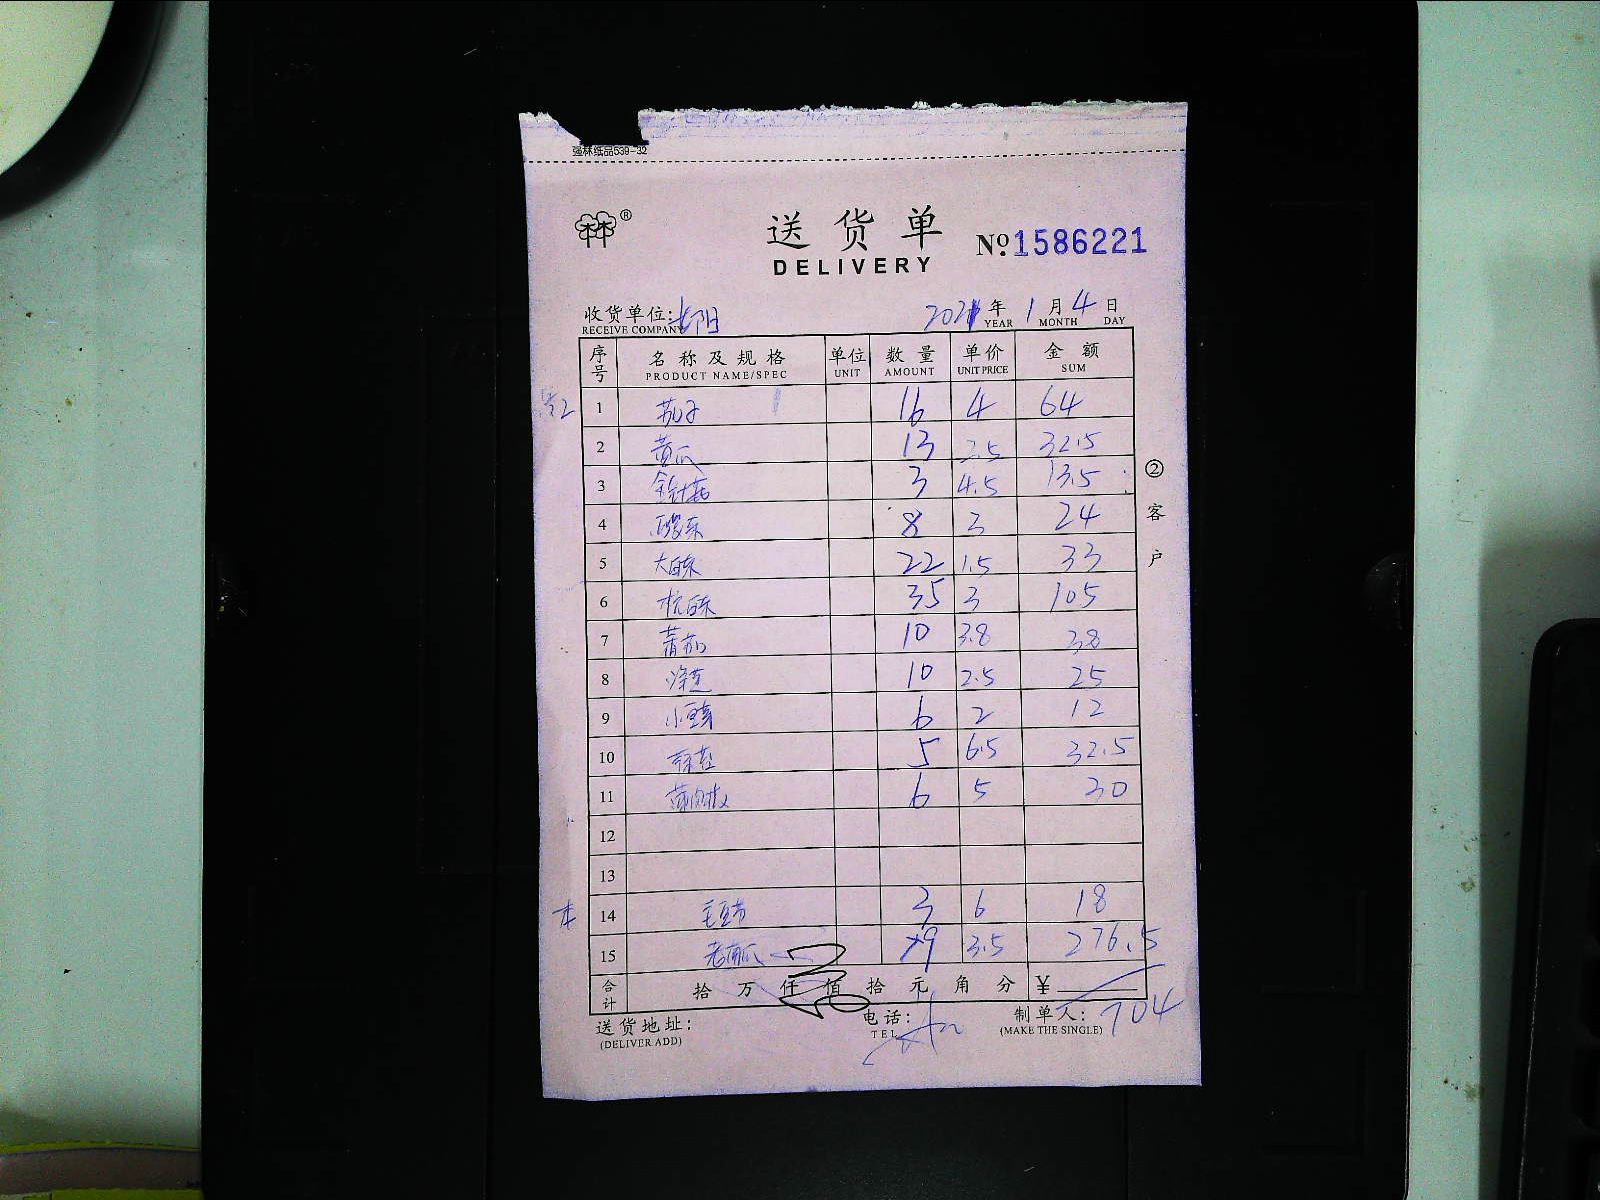 强林纸品539-32
®
送货单
DELIVERY
№ 1586221
收货单位: 沈阳
RECEIVE COMPANY
2021 年 1 月 4 日
YEAR MONTH DAY
序号 名称及规格 单位 数量 单价 金额
PRODUCT NAME/SPEC UNIT AMOUNT UNIT PRICE SUM
1 茄子 16 4 64
2 黄瓜 13 2.5 32.5
3 金针菇 3 4.5 13.5
4 8 3 24
5 大白菜 22 1.5 33
6 杭白菜 35 3 105
7 蕃茄 10 3.8 38
8 洋芝 10 2.5 25
9 小 6 2 12
10 5 6.5 32.5
11 薄肉椒 6 5 30
12
13
14 毛豆节 3 6 18
15 老南瓜 79 3.5 276.5
合计 拾 万 仟 佰 拾 元 角 分 ¥
704
送货地址:
(DELIVER ADD)
电话:
TEL
制单人:
(MAKE THE SINGLE)
② 客户